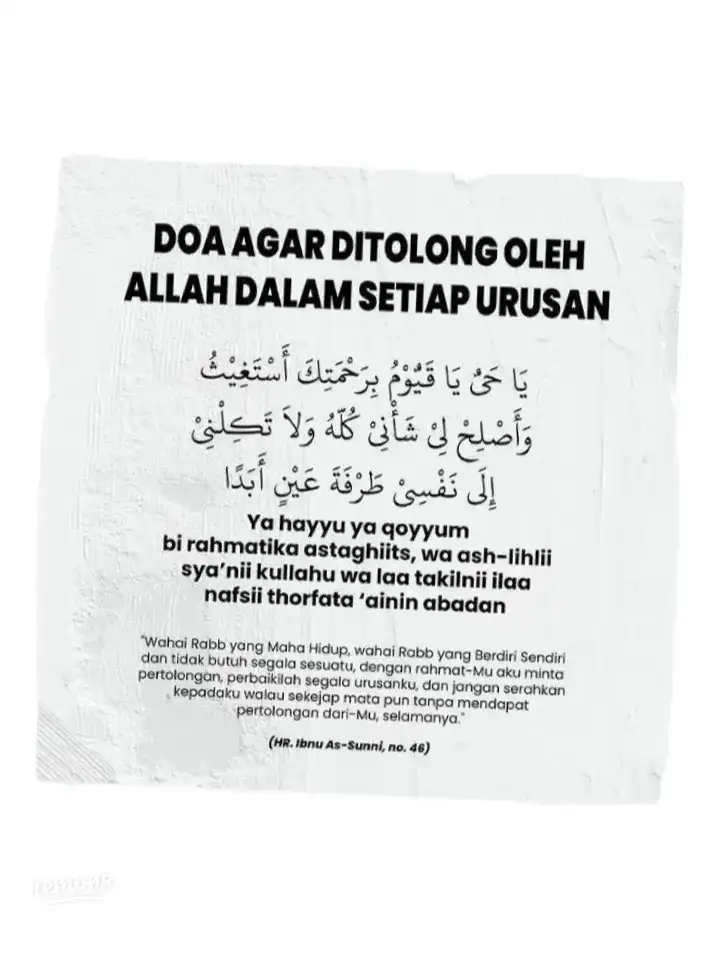 DOA AGAR DITOLONG OLEH
ALLAH DALAM SETIAP URUSAN
يَا حَيُّ يَا قَيُّوْمُ بِرَحْمَتِكَ أَسْتَغِيْثُ
وَأَصْلِحْ لِيْ شَأْنِيْ كُلَّهُ وَلاَ تَكِلْنِيْ
إِلَى نَفْسِيْ طَرْفَةَ عَيْنٍ أَبَدًا
Ya hayyu ya qoyyum
bi rahmatika astaghiits, wa ash-lihlii
sya’nii kullahu wa laa takilnii ilaa
nafsii thorfata ‘ainin abadan
"Wahai Rabb yang Maha Hidup, wahai Rabb yang Berdiri Sendiri
dan tidak butuh segala sesuatu, dengan rahmat-Mu aku minta
pertolongan, perbaikilah segala urusanku, dan jangan serahkan
kepadaku walau sekejap mata pun tanpa mendapat
pertolongan dari-Mu, selamanya."
(HR. Ibnu As-Sunni, no. 46)